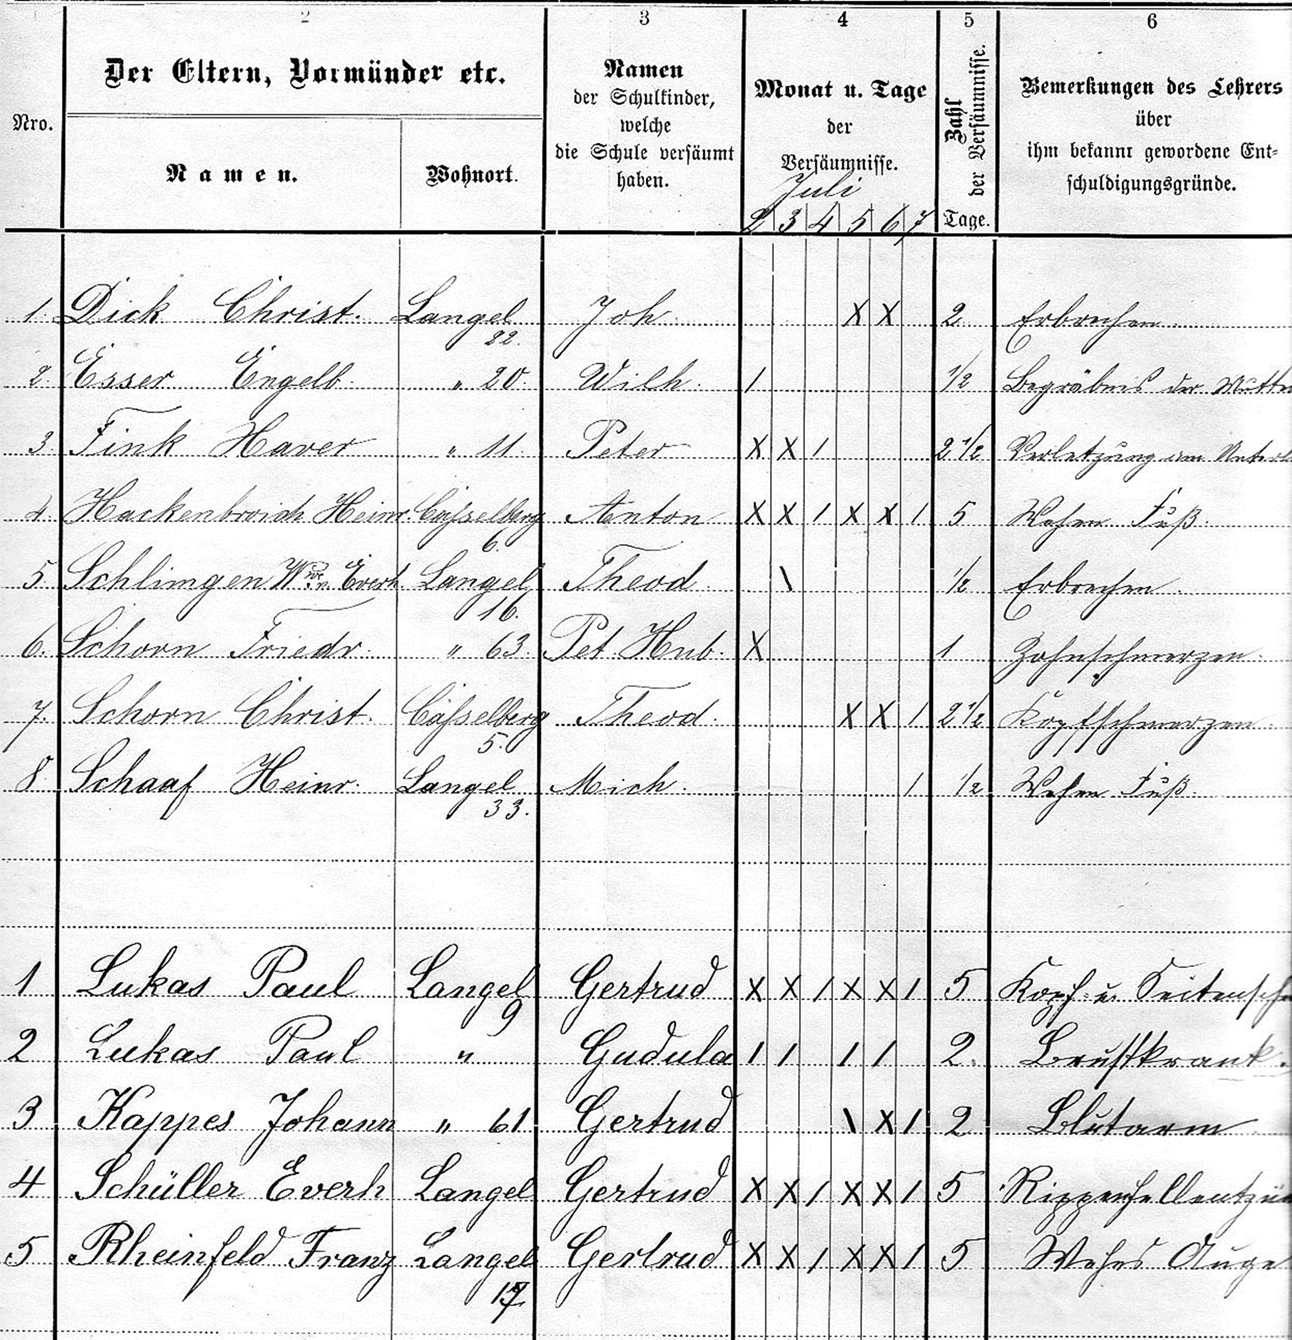 2 3 4 5 6
Nro. Der Eltern, Vormünder etc. Namen Monat u. Tage Zahl der Versäumnisse. Bemerkungen des Lehrers
der Schulkinder, der über
Namen. Wohnort. welche Versäumnisse. ihm bekannt gewordene Ent-
die Schule versäumt Juli schuldigungsgründe.
haben. 2 3 4 5 6 7 Tage.
1. Dick Christ. Langel 22. Joh. X X 2 Erbrechen.
2. Esser Engelb. " 20. Wilh. / ½ Begräbnis der Mutter
3. Fink Xaver " 11. Peter X X / 2½ Verletzung am
4. Hackenbroich Heinr. Cässelberg 6. Anton X X / X X / 5 Wehen Fuß.
5. Schlimgen Wwe. Everh. Langel 16. Theod. \ ½ Erbrechen.
6. Schorn Friedr. " 63. Pet. Hub. X 1 Zahnschmerzen.
7. Schorn Christ. Cässelberg 5. Theod. X X / 2½ Kopfschmerzen.
8. Schaaf Heinr. Langel 33. Mich. / ½ Wehen Fuß.
1 Lukas Paul Langel 9 Gertrud X X / X X / 5 Kopf- u. Seitensch
2 Lukas Paul " Gudula / / / / 2. Brustkrank.
3 Kappes Johann " 61 Gertrud \ X / 2 Blutarm.
4 Schüller Everh Langel Gertrud X X / X X / 5 Rippenfellentzün
5 Rheinfeld Franz Langel 17 Gertrud X X / X X / 5 Wehes Auge